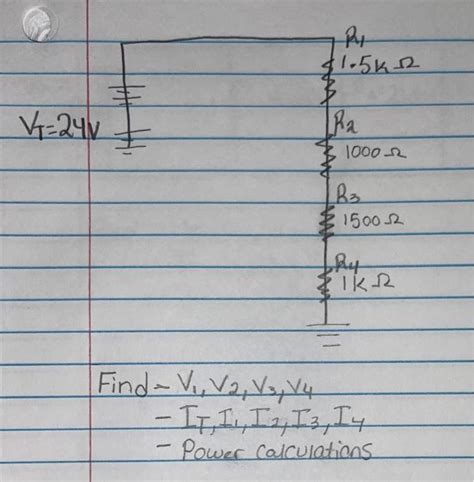 R1
1.5K Ω
VT=24V
R2
1000 Ω
R3
1500 Ω
R4
1K Ω
Find - V1, V2, V3, V4
- IT, I1, I2, I3, I4
- Power calculations